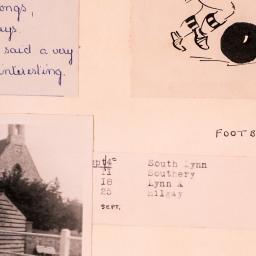 ongs,
ays.
said a very
interesting.
FOOTB
ept4 South Lynn
11 Southery
18 Lynn A
25 Hilgay
SEPT.